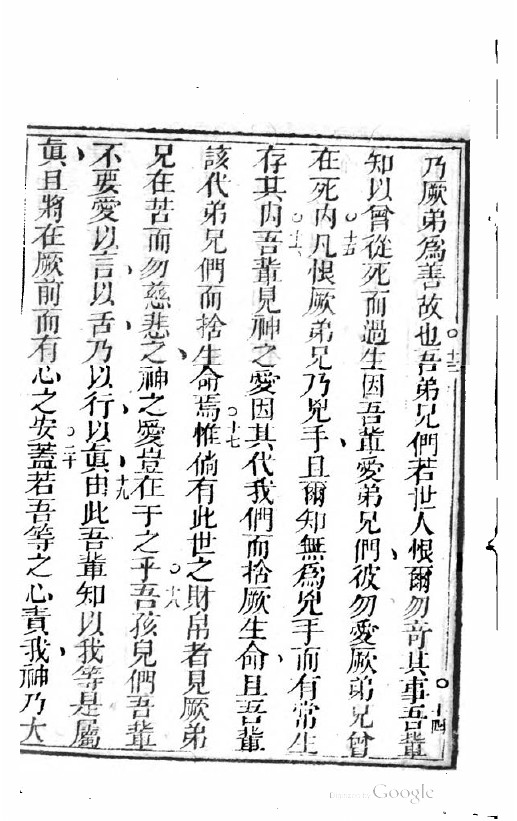 乃厥弟爲善故也○十三吾弟兄們若世人恨爾勿竒其事○十四吾輩
知以曾從死而過生因吾輩愛弟兄們彼勿愛厥弟兄曾
在死內○十五凡恨厥弟兄乃兇手且爾知無爲兇手而有常生
存其內○十六吾輩見神之愛因其代我們而捨厥生命且吾輩
該代弟兄們而捨生命焉○十七惟倘有此世之財帛者見厥弟
兄在苦而勿慈悲之神之愛豈在于之乎○十八吾孩兒們吾輩
不要愛以言以舌乃以行以眞○十九由此吾輩知以我等是屬
眞且將在厥前而有心之安○二十蓋若吾等之心責我神乃大
Digitized by Google